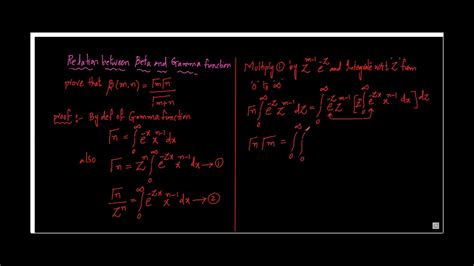 Relation between Beta and Gamma function
prove that β(m,n) = Γm Γn / Γm+n
proof :- By def of Gamma function
Γn = ∫₀^∞ e^-x x^n-1 dx
also
Γn = z^n ∫₀^∞ e^-zx x^n-1 dx → ①
Γn / z^n = ∫₀^∞ e^-zx x^n-1 dx → ②
Multiply ① by z^m-1 e^-z and integrate w.r.t 'z' from
'0' to ∞
Γn ∫₀^∞ e^-z z^m-1 dz = ∫₀^∞ e^-z z^m-1 [z^n ∫₀^∞ e^-zx x^n-1 dx] dz
Γn Γm = ∫₀^∞ ∫₀^∞